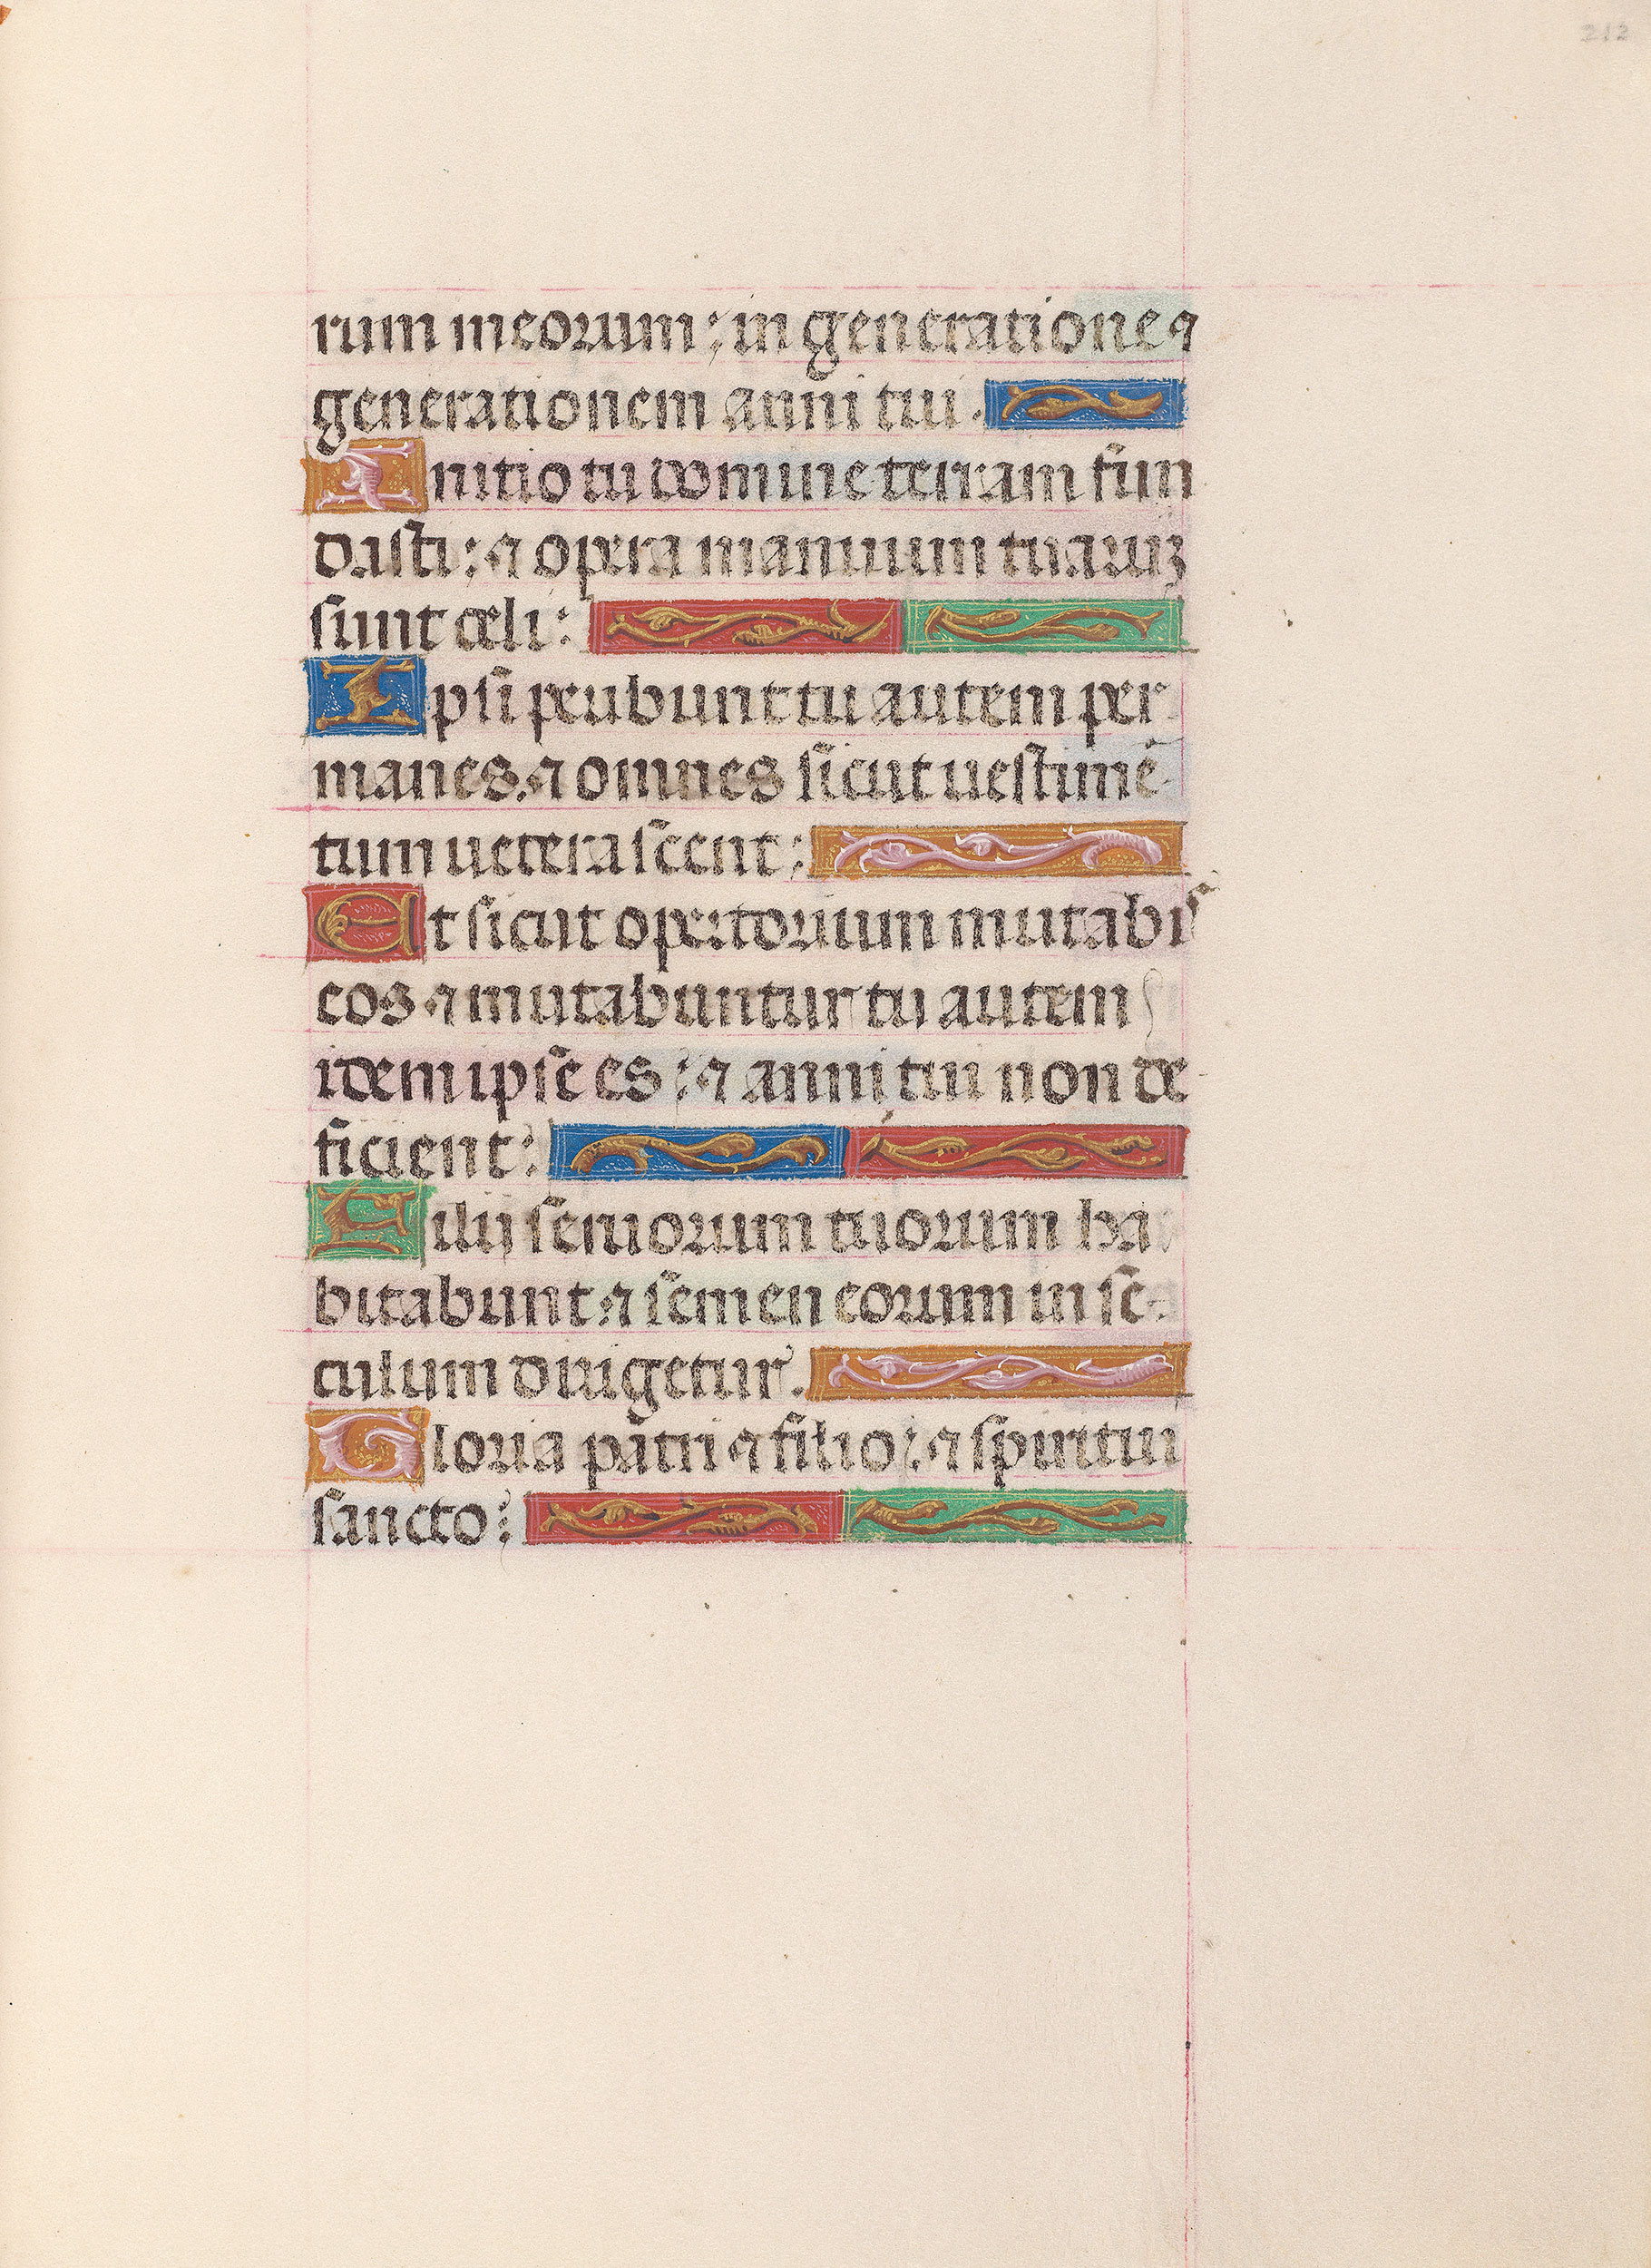 212
rum meorum: in generatione ⁊
generationem anni tui.
Initio tu domine terram fun
dasti: ⁊ opera manuum tuaruꝫ
sunt celi:
Ipsi peribunt tu autem per
manes. ⁊ omnes sicut uestimē
tum ueterascent:
Et sicut opertorium mutabis
eos ⁊ mutabuntur tu autem
idem ipse es: ⁊ anni tui non de
ficient:
Filij seruorum tuorum ha
bitabunt ⁊ semen eorum in se
culum dirigetur.
Gloria patri ⁊ filio: ⁊ spiritui
sancto: